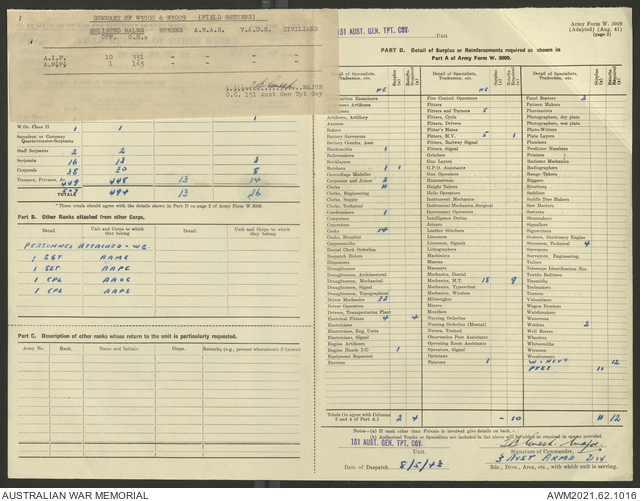 SUMMARY OF W3008 & W3009 (FIELD RETURNS)
ENLISTED MALES NURSES A.W.A.S. V.A.D.S. CIVILIANS
OFF. O.Rs.
A.I.F. 10 331 - - - -
A.M.F. 1 163 - - - -
MAJOR
O.C. 151 Aust Gen Tpt Coy
W.Os. Class II 1 1
Squadron or Company
Quartermaster-Serjeants
Staff Serjeants 2 2
Serjeants 16 13 3
Corporals 38 30 8
Troopers, Privates, &c. 449 448 13 14
TOTALS 494 13 26
*These totals should agree with the details shown in Part D on page 2 of Army Form W.3009.
Part B. Other Ranks attached from other Corps.
Detail. Unit and Corps to which they belong. Detail. Unit and Corps to which they belong.
PERSONNEL ATTACHED - W.E.
1 SGT AAMC
1 SGT AAPC
1 CPL AAOC
1 CPL AAPC
Part C. Description of other ranks whose return to the unit is particularly requested.
Army No. Rank. Name and Initials. Corps. Remarks (e.g., present whereabouts if known)
151 AUST. GEN. TPT. COY. Unit
Army Form W. 3009
(Adapted) (Aug. 41)
(page 2)
PART D. Detail of Surplus or Reinforcements required as shown in
Part A of Army Form W. 3009.
Detail of Specialists, Tradesmen, etc. Surplus Detail of Specialists, Tradesmen, etc. Surplus Detail of Specialists, Tradesmen, etc. Surplus
Ammunition Examiners
Artificers
Artificers, Artillery
Axemen
Bakers
Battery Surveyors
Blacksmiths 1
Boilermakers
Bricklayers
Butchers 1 1
Camouflage Modeller
Carpenter and Joiner 2
Clerks 11
Clerks, Engineering
Clerks, Supply
Clerks, Technical
Coachmakers 1
Computers
Concreters
Cooks 14
Clerks, Hospital
Coppersmiths
Dental Clerk Orderlies
Despatch Riders
Dispensers
Draughtsmen
Draughtsmen, Architectural
Draughtsmen, Mechanical
Draughtsmen, Signal
Draughtsmen, Topographical
Driver Mechanics 32
Driver Operators
Drivers, Transportation Plant
Electrical Fitters 4 4
Electricians
Electricians, Eng. Units
Electricians, Signal
Engine Artificers
Engine Hands I/C 1
Equipment Repairers
Farriers
Fire Control Operators
Fitters
Fitters and Turners 5
Fitters, Cycle
Fitters, Drivers
Fitter's Mates
Fitters, M.V. 5 1
Fitters, Railway Signal
Fitters, Signal
Grinders
Gun Layers
G.P.O. Assistants
Gun Operators
Hammerman
Height Takers
Helio Operators
Instrument Mechanics
Instrument Mechanics, Surgical
Instrument Operators
Intelligence Duties
Joiners
Leather Stitchers
Linesmen
Linesmen, Signals
Lithographers
Machinists
Masons
Masseurs
Mechanics, Dental
Mechanics, M.T. 18 9
Mechanics, Typewriter
Mechanics, Wireless
Millwrights
Miners
Moulders
Nursing Orderlies
Nursing Orderlies (Mental)
Nurses, Trained
Observation Post Assistants
Operating Room Assistants
Operators, Signal
Opticians
Painters 1
Panel Beaters 2
Pattern Makers
Pharmacists
Photographers, dry plate
Photographers, wet plate
Photo-Writers
Plate Layers
Plumbers
Predictor Numbers
Printers
Radiator Mechanics
Radiographers
Range Takers
Riggers
Rivetters
Saddlers
Saddle Tree Makers
Saw Doctors
Sawyers
Shoemakers
Signallers
Signwriters
Stokers, Stationary Engine
Storemen, Technical 4
Surveyors
Surveyors, Engineering
Tailors
Telescope Identification Nos.
Textile Refitters
Tinsmiths
Toolmakers
Turners
Vulcanisers
Wagon Erectors
Watchmakers
Watermen
Welders 2
Well Borers
Wheelers
Whitesmiths
Wiremen
Woodturners
12
PTES 11
Totals (to agree with Columns 3 and 4 of Part A.) 2 4 - 10 11 12
Note:-(a) If rank other than Private is involved give details on back.
(b) Authorised Trades or Specialists not included in list above will be added as required in spaces provided.
151 AUST. GEN. TPT. COY.
Unit.
Major.
Signature of Commander,
3 AUST ARMD DIV
Date of Despatch 8/5/43 Bde., Divn., Area, etc., with which unit is serving.
AUSTRALIAN WAR MEMORIAL AWM2021.62.1016